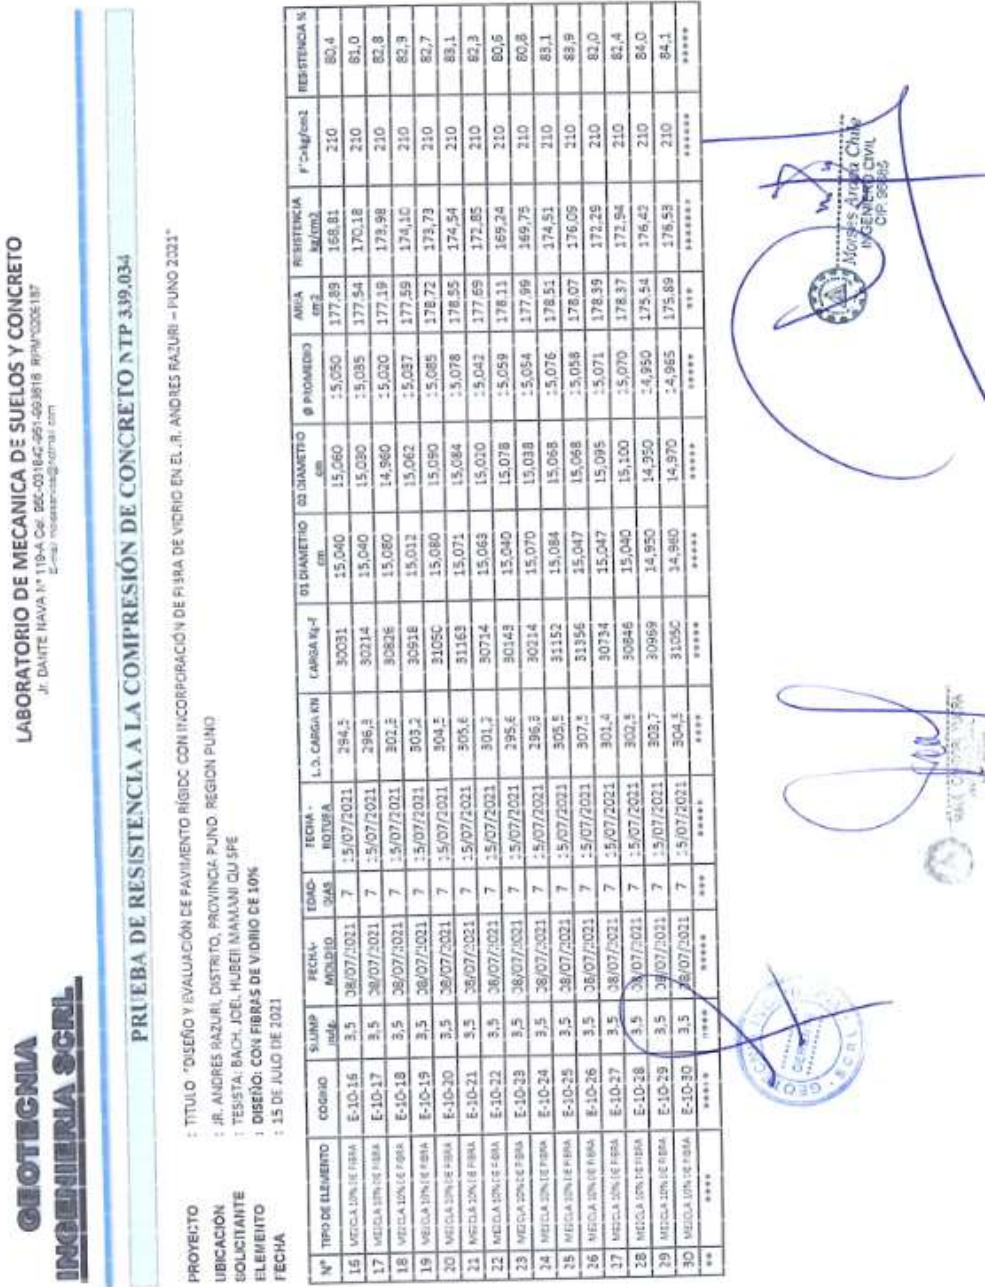 GEOTECNIA
INGENIERIA SCRL
LABORATORIO DE MECANICA DE SUELOS Y CONCRETO
Jr. DANTE NAVA N° 119-A Cel.
PRUEBA DE RESISTENCIA A LA COMPRESIÓN DE CONCRETO NTP 339.034
PROYECTO : TITULO "DISEÑO Y EVALUACIÓN DE PAVIMENTO RÍGIDO CON INCORPORACIÓN DE FIBRA DE VIDRIO EN EL JR. ANDRES RAZURI – PUNO 2021"
UBICACIÓN : JR. ANDRES RAZURI, DISTRITO, PROVINCIA PUNO. REGION PUNO
SOLICITANTE : TESISTA: BACH. JOEL HUBER MAMANI QUISPE
ELEMENTO : DISEÑO: CON FIBRAS DE VIDRIO DE 10%
FECHA : 15 DE JULO DE 2021
N° TIPO DE ELEMENTO CODIGO SLUMP pulg. FECHA-MOLDEO EDAD-DIAS FECHA - ROTURA L.D. CARGA KN CARGA Kg-f 01 DIAMETRO cm 02 DIAMETRO cm Ø PROMEDIO AREA cm2 RESISTENCIA kg/cm2 F'C=kg/cm2 RESISTENCIA %
16 MEZCLA 10% DE FIBRA E-10-16 3,5 08/07/2021 7 15/07/2021 294,5 30031 15,040 15,060 15,050 177,89 168,81 210 80,4
17 MEZCLA 10% DE FIBRA E-10-17 3,5 08/07/2021 7 15/07/2021 296,3 30214 15,040 15,030 15,035 177,54 170,18 210 81,0
18 MEZCLA 10% DE FIBRA E-10-18 3,5 08/07/2021 7 15/07/2021 302,3 30826 15,080 14,960 15,020 177,19 173,98 210 82,8
19 MEZCLA 10% DE FIBRA E-10-19 3,5 08/07/2021 7 15/07/2021 303,2 30918 15,012 15,062 15,037 177,59 174,10 210 82,9
20 MEZCLA 10% DE FIBRA E-10-20 3,5 08/07/2021 7 15/07/2021 304,5 31050 15,080 15,090 15,085 178,72 173,73 210 82,7
21 MEZCLA 10% DE FIBRA E-10-21 3,5 08/07/2021 7 15/07/2021 305,6 31163 15,071 15,084 15,078 178,55 174,54 210 83,1
22 MEZCLA 10% DE FIBRA E-10-22 3,5 08/07/2021 7 15/07/2021 301,2 30714 15,063 15,020 15,042 177,69 172,85 210 82,3
23 MEZCLA 10% DE FIBRA E-10-23 3,5 08/07/2021 7 15/07/2021 295,6 30143 15,040 15,078 15,059 178,11 169,24 210 80,6
24 MEZCLA 10% DE FIBRA E-10-24 3,5 08/07/2021 7 15/07/2021 296,3 30214 15,070 15,038 15,054 177,99 169,75 210 80,8
25 MEZCLA 10% DE FIBRA E-10-25 3,5 08/07/2021 7 15/07/2021 305,5 31152 15,084 15,068 15,076 178,51 174,51 210 83,1
26 MEZCLA 10% DE FIBRA E-10-26 3,5 08/07/2021 7 15/07/2021 307,5 31356 15,047 15,068 15,058 178,07 176,09 210 83,9
27 MEZCLA 10% DE FIBRA E-10-27 3,5 08/07/2021 7 15/07/2021 301,4 30734 15,047 15,095 15,071 178,39 172,29 210 82,0
28 MEZCLA 10% DE FIBRA E-10-28 3,5 08/07/2021 7 15/07/2021 302,5 30846 15,040 15,100 15,070 178,37 172,94 210 82,4
29 MEZCLA 10% DE FIBRA E-10-29 3,5 08/07/2021 7 15/07/2021 303,7 30969 14,950 14,950 14,950 175,54 176,42 210 84,0
30 MEZCLA 10% DE FIBRA E-10-30 3,5 08/07/2021 7 15/07/2021 304,5 31050 14,960 14,970 14,965 175,89 176,53 210 84,1
Chile
INGENIERO CIVIL